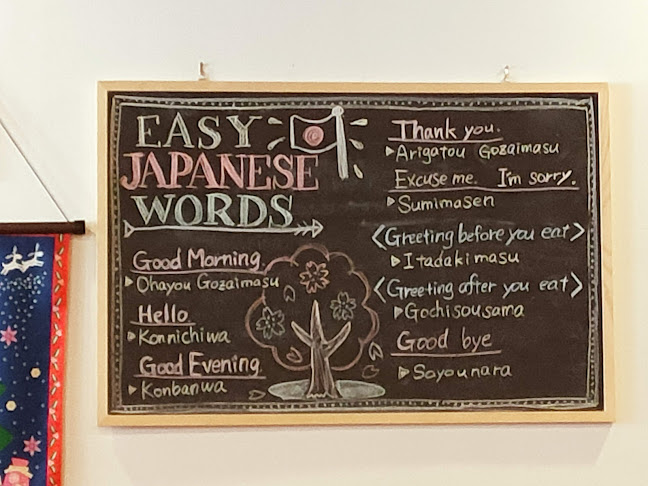 EASY
JAPANESE
WORDS
Good Morning
Ohayou Gozaimasu
Hello
Konnichiwa
Good Evening.
Konbanwa
Thank you.
Arigatou Gozaimasu
Excuse me. I'm sorry.
Sumimasen
<Greeting before you eat>
Itadakimasu
<Greeting after you eat>
Gochisousama
Good bye
Sayounara